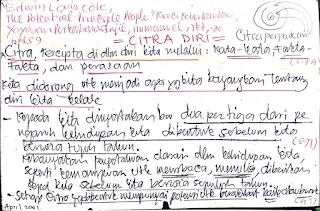 Edwin Louis Cole,
The Potential Principle People
Yayasan Pekabaran Injil, Immanuel,
= CITRA DIRI =
Citra, tercipta di dlm diri kita melalui: Kata-kata, Fakta-
Fakta, dan perasaan
Kita didorong utk menjadi apa yg kita bayangkan tentang
diri kita
- Kepada kita diinyatakan bw dua pertiga dari pe
ngaruh kehidupan kita dibentuk sebelum kita
berusia tujuh tahun.
- Kebanyakan pengalaman dasar dlm kehidupan kita,
seperti kemampuan utk membaca, menulis, diberikan
kpd kita sebelum kita berusia sepuluh tahun.
- Setiap Orng mempunyai potensi utk
April 2001